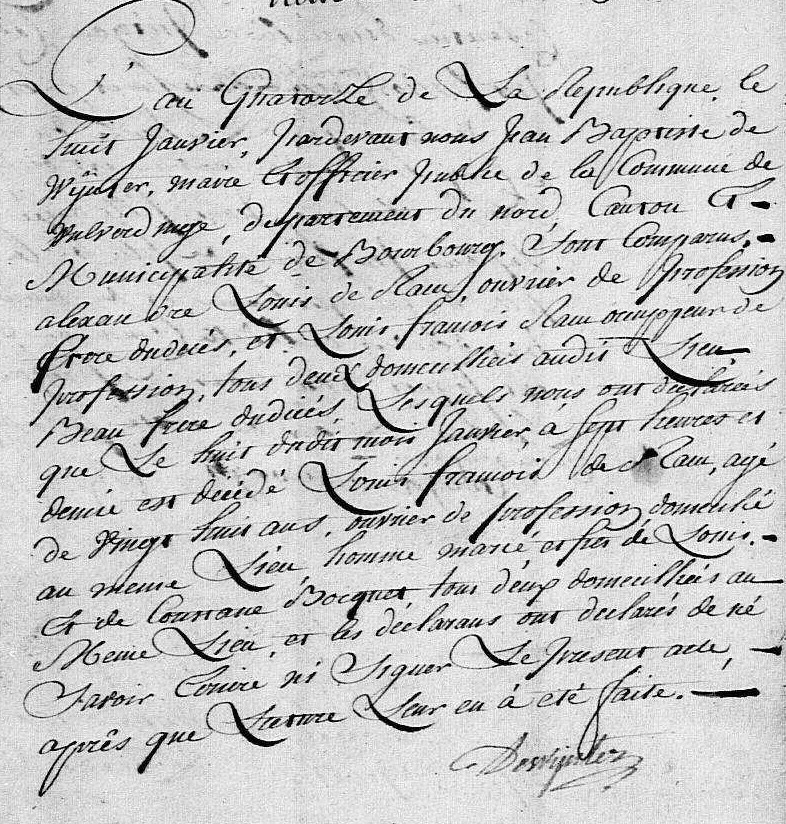 L'an Quatorze de La Republique, le
huit Janvier, pardevant nous Jean Baptiste de
Wijnter, maire Et officier public de la Commune de
Wulverdinge, departement du nord, Canton Et
Municipalité de Bourbourg. Sont Comparus,
alexandre Louis de Ram, ouvrier de profession
frere dudices, et Louis francois Ram
profession, tous deux domeciliéis audit Lieu
Beau frere dudicés, Lesquels nous ont declareés
que Le huit dudit mois Janvier á sept heures et
demie est decédé Louis francois de Ram, agé
de Vingt huit ans, ouvrier de profession domecilié
au meme Lieu homme marié et fils de Louis,
Et de Constane Bocquet tous deux domeciliéés au
Meme Lieu, et les déclarans ont declarés de né
Savoir Ecrire ni Signer Le present acte,
aprês que Lecture Leur en á eté faite.
Dewijnter